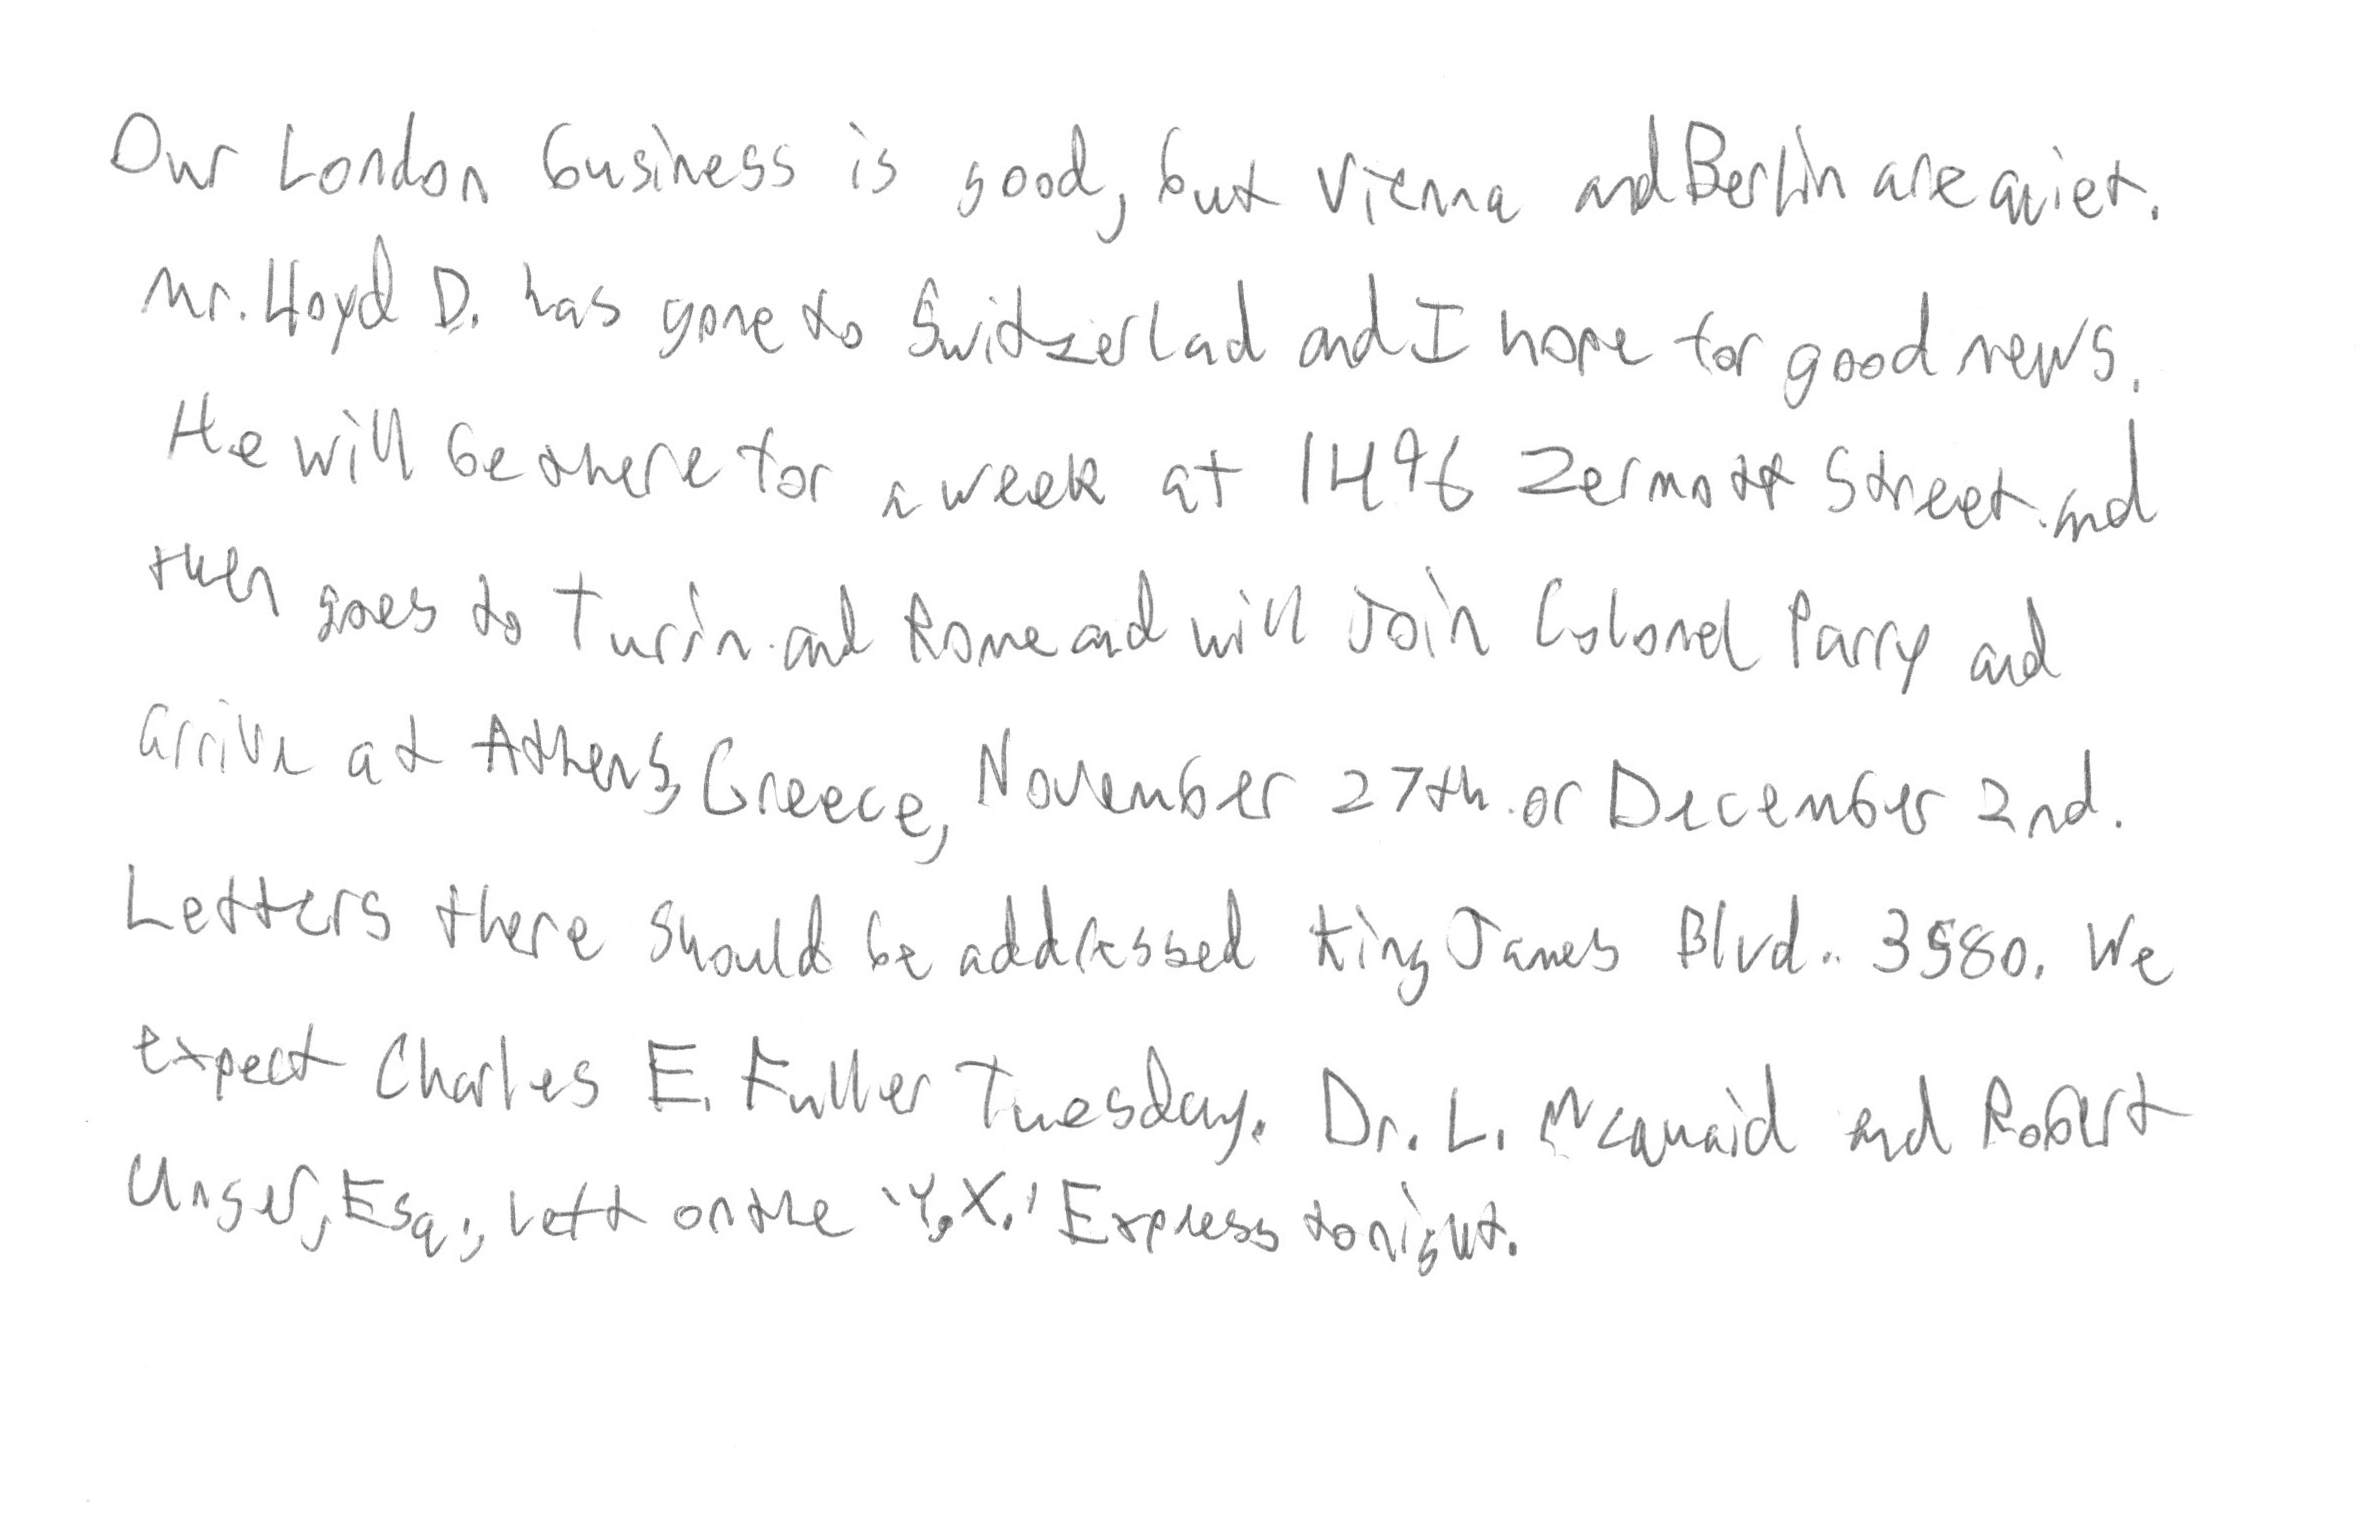 Our London business is good, but Vienna and Berlin are quiet.
Mr. Lloyd D. has gone to Switzerlad and I hope for good news.
He will be there for a week at 1496 Zermott Street and
then goes to Turin and Rome and will Join Colonel Parry and
arrive at Athens, Greece, November 27th or December 2nd.
Letters there should be addressed King James Blvd.. 3580. We
expect Charles E. Fuller Tuesday. Dr. L. McQuaid and Robert
Unger, Esq., left on the 'Y.X.' Express tonight.